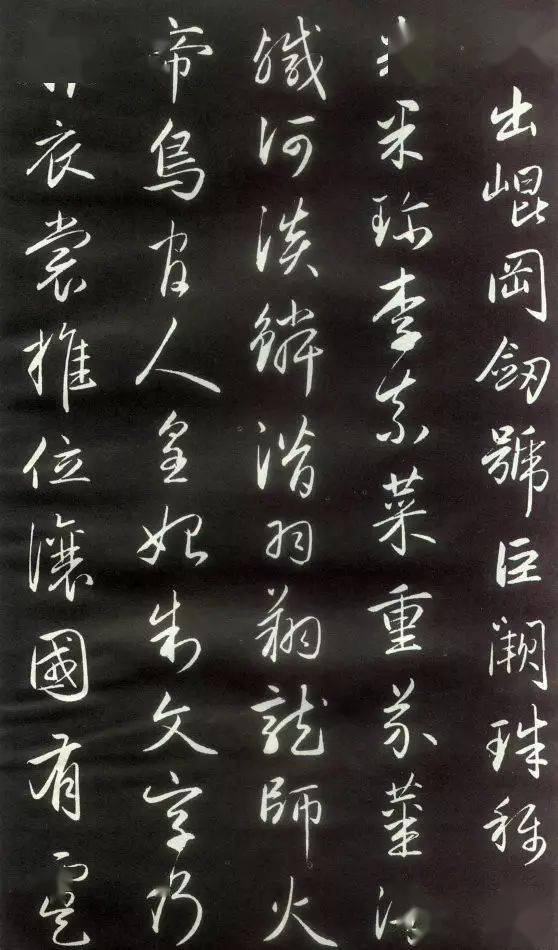 出崐岡劒號巨闕珠稱
果珍李柰菜重芥薑
鹹河淡鱗潛羽翔龍師火
帝鳥官人皇始制文字乃
衣裳推位讓國有虞